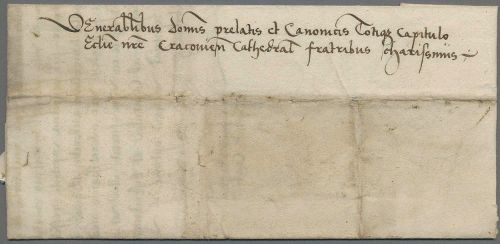 Venerabilibus domis prelatis et Canonicis Totiqz Capitulo
Ecclie nre Cracovien Cathedral fratribus charissimis